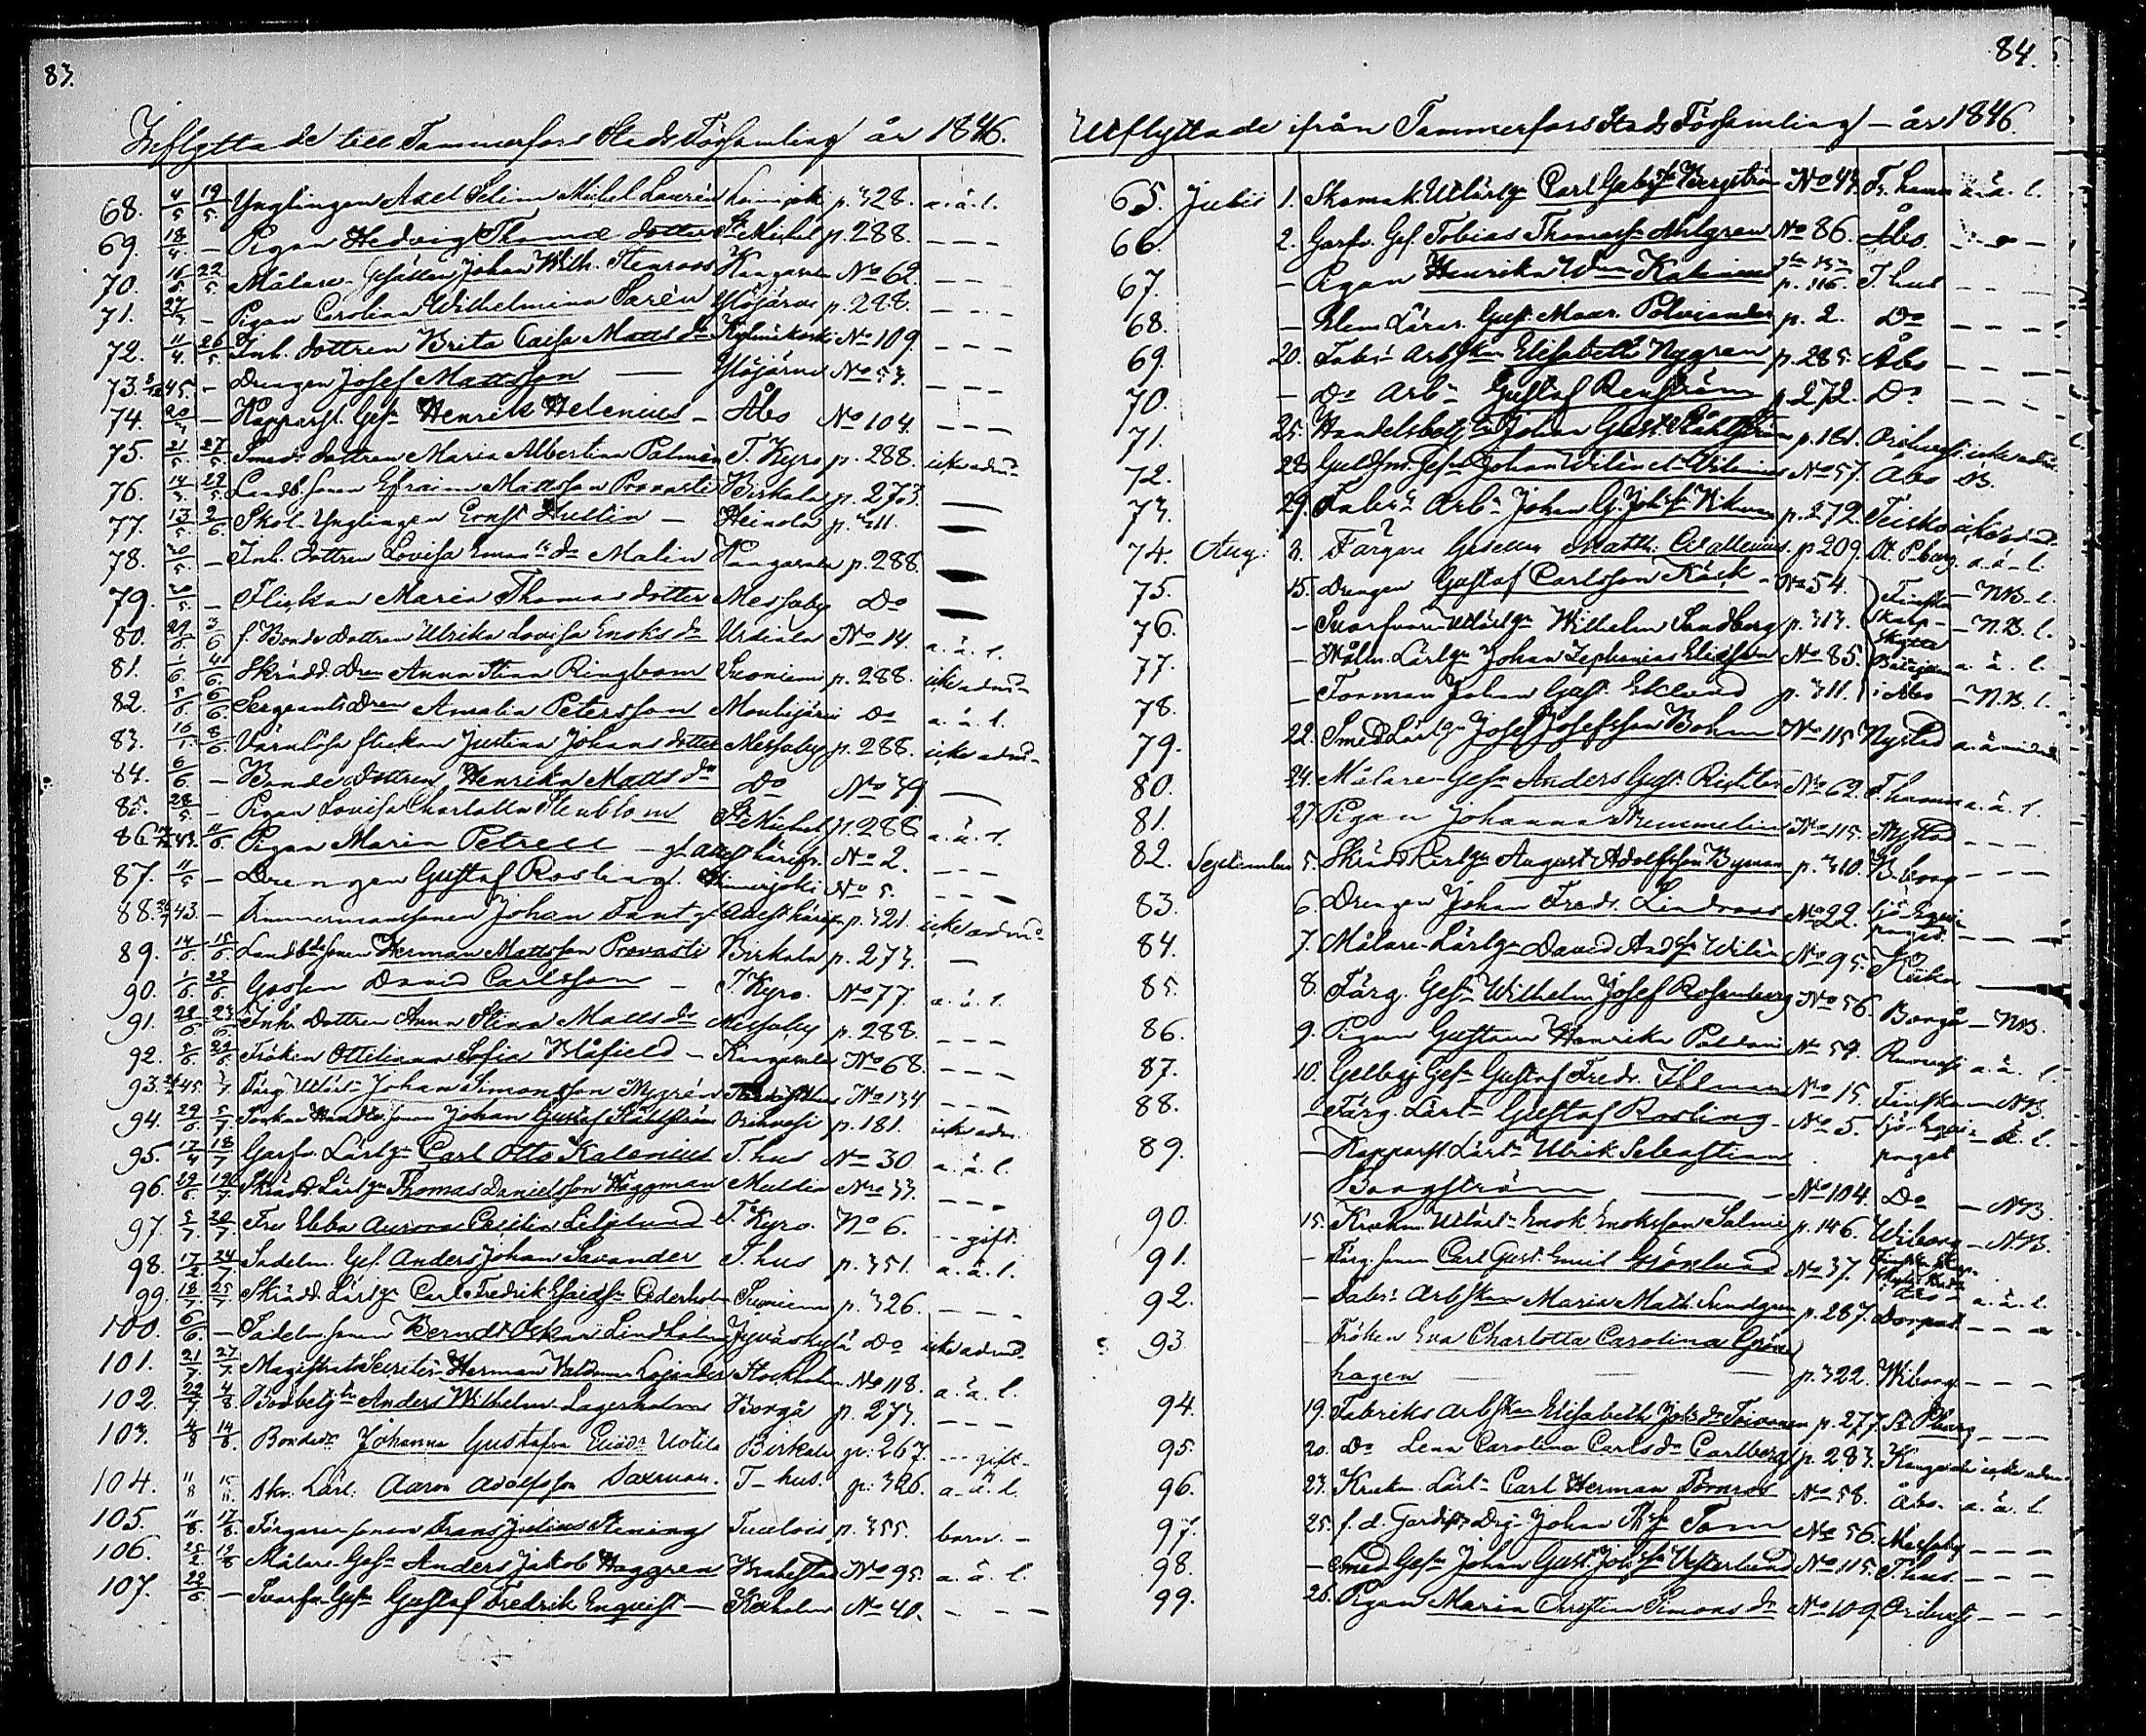 83.
Inflyttade till Tammerfors Stads Församling år 1846.
68. 4/5 19/5 Ynglingen Axel Selim Mikel Laurén p. 328. a. ä. l.
69. 18/4 — Pigan Hedvig Thomæ dotter St Michel p. 288. — — —
70. 16/5 22/5 Målare-Gesällen Johan Wilh. Stenroos Kangasala No 62. — — —
71. 27/4 — Pigan Carolina Wilhelmina Sarén Ylöjärvi p. 288. — — —
72. 11/4 26/5 Inh. dottren Brita Caisa Matts dr No 109. — — —
73. 45. — Drengen Josef Mattsson — Ylöjärvi No 53. — — —
74. — Kopparsl. Gesn Henrik Helenius — Åbo No 104 — — —
75. 21/5 27/5 Smeds dottren Maria Albertina Palmén T. Kyro p. 288. icke adm.
76. 14/3 29/5 Landb. sonen Efraim Mattsson Provasti Birkala p. 273. —
77. 13/5 2/6 Skol-Ynglingen Ernst Hullin — Heinola p. 311. —
78. 20/5 — Inh. dottren Lovisa Eman. dr Malin Kangasala p. 288. —
79. 20/5 — Flickan Maria Thomas dotter Messuby Do —
80. 29/5 3/6 f. Bonde dottren Ulrika Lovisa Enoks dr Urdiala No 14. a. ä. l.
81. 1/6 4/6 Skrädd. Dren Anna Stina Ringbom Suoniemi p. 288. icke adm.
82. 5/6 6/6 Sergeants Dren Amalia Petersson Mouhijärvi Do a. ä. l.
83. 16/1 8/6 Värnlösa flickan Justina Johans dotter Messuby p. 288. icke adm.
84. 6/6 — Bonde dottren Henrika Matts dr Do No 79 —
85. 28/5 — Pigan Lovisa Charlotta Stenblom St Michel p. 288 a. ä. l.
86. 43. 11/6 Pigan Maria Petrell — No 2. — — —
87. 11/5 — Drengen Gustaf Rosling No 5. — — —
88. 43. — Timmermanssonen Johan Fant p. 321. icke adm.
89. 14/6 15/6 Landb. sonen Herman Mattsson Provasti Birkala p. 273. —
90. 1/6 22/6 Gossen David Carlsson — T. Kyro. No 77. a. ä. l.
91. 22/6 23/6 Inh. Dottren Anna Stina Matts dr Messuby p. 288. — — —
92. 5/6 29/6 Fröken Ottiliana Sofia Blåfield — Kangasala No 68. — — —
93. 45. Färg. Utlärl. Johan Simonsson Nygrén No 134 — — —
94. 29/6 5/7 Johan Gustaf Ståhlström Orihvesi p. 181. icke adm.
95. 17/7 18/7 Garfv. Lärlgn Carl Otto Kalenius T. hus No 30 a. ä. l.
96. 29/6 Skrädd. Lärlgn Thomas Danielsson Häggman Multia No 33. — — —
97. 5/7 20/7 Fru Ebba Aurora Cecilia Liljelund T. Kyro. No 6. — gift.
98. 17/2 24/7 Sadelm. Ges. Anders Johan Savander T. hus p. 351. a. ä. l.
99. 18/7 25/7 Skrädd. Lärlgn Carl Fredrik Cederholm Suoniemi p. 326. — — —
100. 6/6 — Sadelm. sonen Berndt Oskar Lindholm Jyväskylä Do icke adm.
101. 21/7 27/7 Magistrats Secreter. Herman Lojander Stockholm No 118. a. ä. l.
102. 29/7 4/8 Bodbetj. Anders Wilhelm Lagerholm Borgå p. 273. — — —
103. 4/8 14/8 Bondedr Johanna Gustafva Uotila Birkala p. 267. — gift.
104. 11/8 Skr. Lärl. Aaron Adolfsson Saxman. T-hus. p. 326. a. ä. l.
105. 11/8 17/8 Färgare sonen Frans Julius Stening Tuulois p. 355. barn. —
106. 25/2 19/8 Målare Gesn Anders Jakob Haggren Brahestad No 95. a. ä. l.
107. 22/6 — Svarfv. Gesn Gustaf Fredrik Enqvist — Kexholm No 40. — — —
84.
Utflyttade ifrån Tammerfors Stads Församling — år 1846.
65. Julii 1. Skomak. Utlärlgn Carl Gabr. Bergström No 43. a. ä. l.
66. 2. Garfv. Ges. Tobias Thomass. Ahlgren No 86. Åbo — — —
67. — Pigan Henrika Kalenius p. 316. T. hus — — —
68. — Elem. Lärar. Gust. Maur. Polviander p. 2. Do — — —
69. 20. Fabr. Arbskan Elisabeth Nygren p. 285. Åbo — — —
70. — Do Arb. Gustaf Renström p. 272. Do — — —
71. 25. Handelsbetj. Johan Gust. Ståhlström p. 181. Orihvesi icke adm.
72. 28. Guldsm. Gesn Johan Wilénius No 57. Åbo NB.
73. 29. Fabr. Arb. Johan G. Johss. Vikman p. 272. Teisko icke adm.
74. Aug. 3. Färgare Gesellen Matth. Cialenius p 209. St. Pburg. a. ä. l.
75. 15. Drengen Gustaf Carlsson Käck — No 54. Finska — NB. l.
76. — Svarfvare Utlärlgn Wilhelm Sandberg p. 313. Skarp- — N.B. l.
skytte
77. — Målm. Lärlgn Johan Zephanias Eliasson No 85. Bataljon a. ä. l.
78. — Forman Johan Gust. Eklund p. 311. i Åbo — N.B. l.
79. 22. Smed Lärlgn Josef Josefsson Bohm No 115 Nystad
80. 24. Målare-Gesn Anders Gust. Richter No 62. T. hamn a. ä. l.
81. 27. Pigan Johanna Memmelin No 115. Nystad — — —
82. September 5. Skrädd. Lärlgn August Adolfsson Byman p. 310. B. borg — — —
83. 6. Drengen Johan Fredr. Lindroos No 22. Sjö Equi-
paget. — — —
84. 7. Målare-Lärlgn David Andss. Wilén No 95. —
85. 8. Färg. Gesn Wilhelm Josef Rosenberg No 56. Borgå — NB.
86. 9. Pigan Gustava Henrika Paldani No 54. Ruovesi a. ä. l.
87. 10. Gelbgj. Gesn Gustaf Fredr. Ihlman No 15. Finska NB.
88. — Färg. Lärl. Gustaf Rosling No 5. Sjö-Equi- ä. l.
paget
89. — Kopparsl. Lärl. Ulrik Sebastian
Borgström — No 104. Do — NB.
90. 15. Krukm. Utlärl. Enok Enoksson Salmi p. 146. Wiborg — NB.
91. — Färg. sonen Carl Gust. Emil Grönlund No 37. a. ä. l.
92. — Fabr. Arbskan Maria Math. Sundgren p. 267. Dorpat — — —
93 — Fröken Eva Charlotta Carolina Grön-
hagen — p. 322. Wiborg — — —
94. 19. Fabriks Arbskan Elisabeth Johs dr Toivonen p. 277. St. Pburg — — —
95. 20. Do Lena Carolina Carls dr Carlberg p. 283. Kangasala icke adm.
96. 23. Krukm. Lärl. Carl Herman Törnroos No 58. Åbo. a. ä. l.
97. 25. f. d. Gardists Drg. Johan Tam No 56. Messuby — — —
98. — Smed Gesn Johan Gust. Johss. Vesterlund No 115. T. hus — — —
99. 26. Pigan Maria Christina Simons dr No 109 Orihvesi — — —